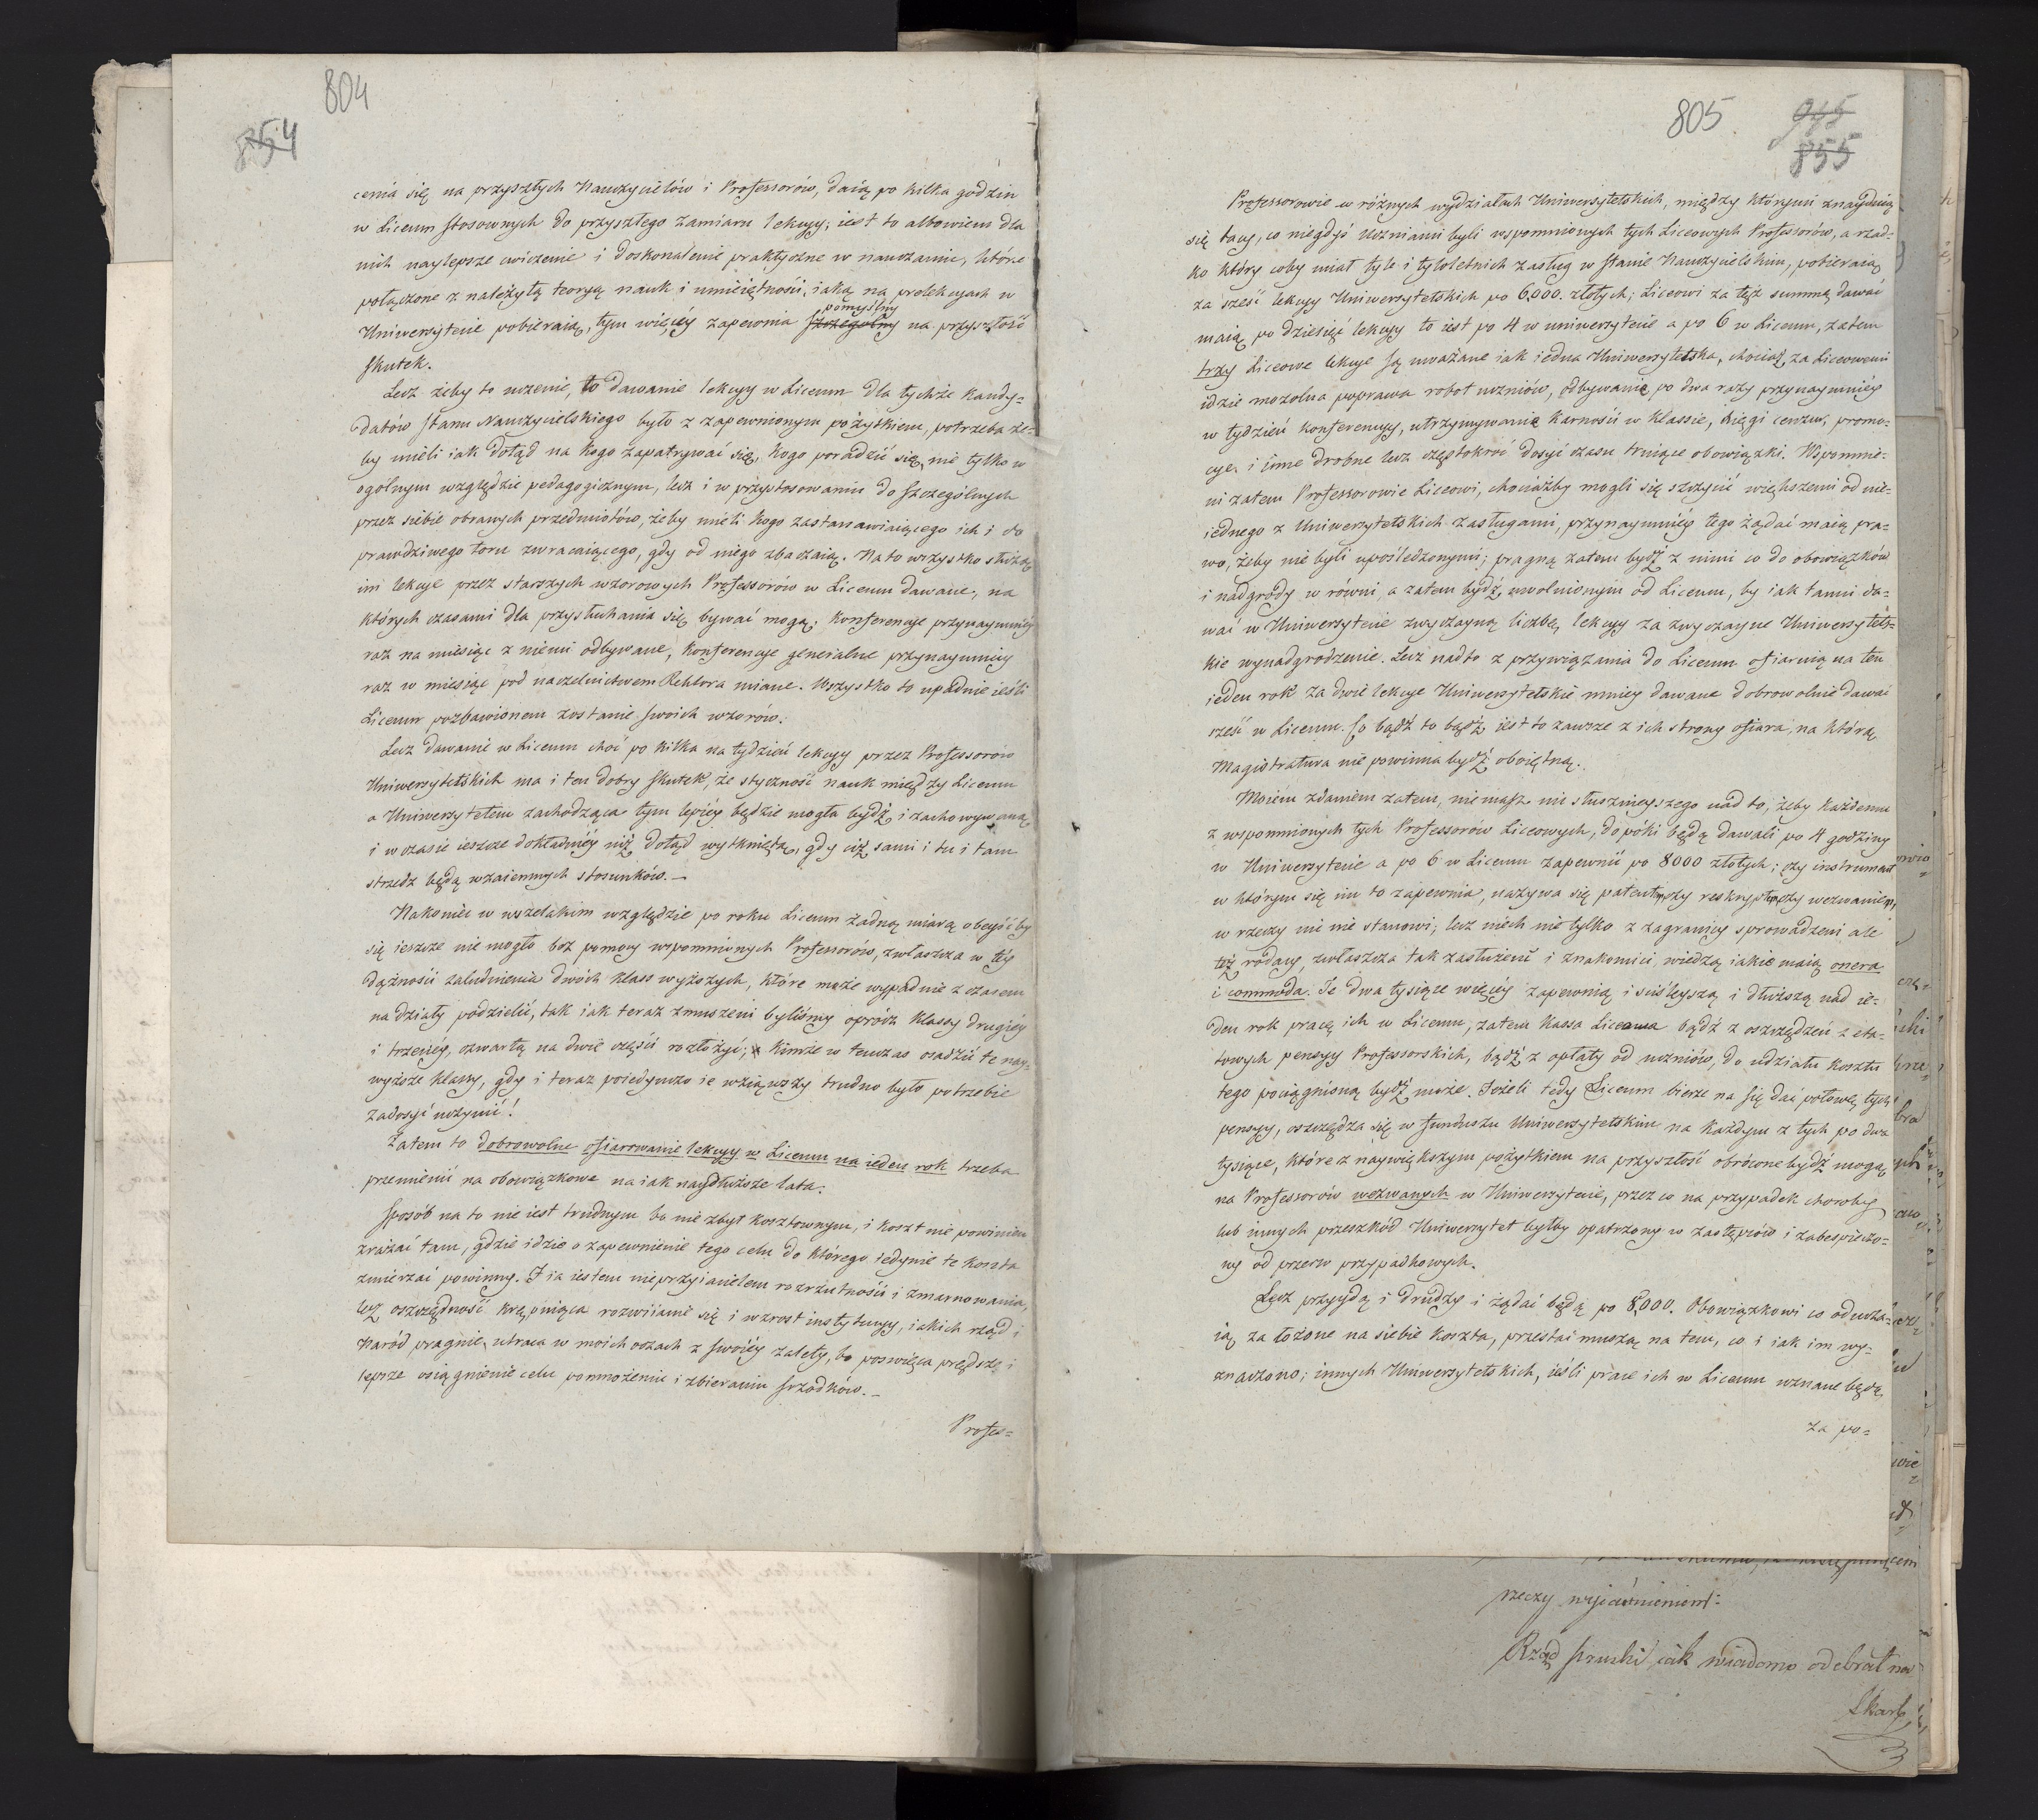 804
854
cenia się na przyszłych Nauczycielów i Professorów, daią po kilka godzin
w Liceum stosownych do przyszłego zamiaru lekcyy; iest to albowiem dla
nich naylepsze cwiczenie i doskonalenie praktyczne w nauczaniu, które
połączone z należytą teoryą nauk i umieiętności, iaką na prelekcyach w
pomyślny
Uniwersytecie pobieraią, tym więcéy zapewnia szczegolny na przyszłość
skutek.
Lecz żeby to uczenie, to dawanie lekcyy w Liceum dla tychże Kandy=
datów stanu Nauczycielskiego było z zapewnionym pożytkiem, potrzeba że=
by mieli iak dotąd na kogo zapatrywać się, kogo poradzić się, nie tylko w
ogólnym względzie pedagogicznym, lecz i w przystosowaniu do szczególnych
przez siebie obranych przedmiotów, żeby mieli kogo zastanawiaiącego ich i do
prawdziwego toru zwracaiącego, gdy od niego zbaczaią. Na to wszystko służą
im lekcye przez starszych wzorowych Professorów w Liceum dawane, na
których czasami dla przysłuchania się bywać mogą; Konferencye przynaymniéy
raz na miesiąc z niemi odbywane, Konferencye generalne przynaymniéy
raz w miesiąc pod naczelnictwem Rektora miane. Wszystko to upadnie ieśli
Liceum pozbawionem zostanie swoich wzorów.
Lecz dawanie w Liceum choć po kilka na tydzień lekcyy przez Professorów
Uniwersytetskich ma i ten dobry skutek, że styczność nauk między Liceum
a Uniwersytetem zachodząca tym lepiéy będzie mogła bydź i zachowywaną
i w czasie ieszcze dokładniéy niż dotąd wytkniętą, gdy ciż sami i tu i tam
strzedz będą wzaiemnych stosunków. —
Nakoniec w wszelakim względzie po roku Liceum żadną miarą obeyść by
się ieszcze nie mogło bez pomocy wspomnionych Professorów, zwłaszcza w téy
dążności zaludnienia dwóch klass wyższych, które może wypadnie z czasem
na działy podzielić, tak iak teraz zmuszeni byliśmy oprócz klassy drugiéy
i trzeciéy, czwartą na dwie części rozłożyć; Kimże w tenczas osadzić te nay=
wyższe klassy, gdy i teraz poiedynczo ie wziąwszy trudno było potrzebie
zadosyć uczynić!
Zatem to dobrowolne ofiarowanie lekcyy w Liceum na ieden rok trzeba
przemienić na obowiązkowe na iak naydłuższe lata.
Sposób na to nie iest trudnym bo nie zbyt kosztownym, i koszt nie powinien
zrażać tam, gdzie idzie o zapewnienie tego celu do którego iedynie te koszta
zmierzać powinny. I ia iestem nieprzyiacielem rozrzutności i zmarnowania,
lecz oszczędność krępuiąca rozwiianie się i wzrost instytucyy, iakich rząd i
Naród pragnie, utraca w moich oczach z swoiéy zalety, bo poswięca prędsze i
lepsze osiągnienie celu pomnożeniu i zbieraniu srzodków. —
Profes=
805
915
855
Professorowie w różnych wydziałach Uniwersytetskich, między którymi znayduią
się tacy, co niegdyś uczniami byli wspomnionych tych Liceowych Professorów, a rzad=
ko który coby miał tyle i tyloletnich zasług w stanie Nauczycielskim, pobieraią
za sześć lekcyy Uniwersytetskich po 6,000. złotych; Liceowi za tęż summę dawać
maią po dziesięć lekcyy to iest po 4 w uniwersytecie a po 6 w Liceum, zatem
trzy Liceowe lekcye są uważane iak iedna Uniwersytetska, chociaż za Liceowemi
idzie mozolna poprawa robot uczniów, odbywanie po dwa razy przynaymniéy
w tydzień konferencyy, utrzymywanie karności w klassie, księgi cenzur, promo=
cye, i inne drobne lecz częstokroć dosyć czasu truiące obowiązki. Wspomnie=
ni zatem Professorowie Liceowi, chociażby mogli się szczycić większemi od nie=
iednego z Uniwersytetskich zasługami, przynaymniéy tego żądać maią pra=
wo, żeby nie byli upośledzonymi; pragną zatem bydź z nimi co do obowiązków
i nadgrody w równi, a zatem bydź uwolnionym od Liceum, by iak tamci da=
wać w Uniwersytecie zwyczayną liczbę lekcyy za zwyczayne Uniwersytets=
kie wynadgrodzenie. Lecz nadto z przywiązania do Liceum ofiaruią na ten
ieden rok za dwie lekcye Uniwersytetskie mniéy dawane dobrowolnie dawać
sześć w Liceum. Co bądź to bądź iest to zawsze z ich strony ofiara, na którą
Magistratura nie powinna bydź oboiętną.
Moiém zdaniem zatem, niemasz nic słusznieyszego nad to, żeby każdemu
z wspomnionych tych Professorów Liceowych, dopóki będą dawali po 4 godziny
w Uniwersytecie a po 6 w Liceum zapewnić po 8000 złotych; czy instrument
w którym się im to zapewnia, nazywa się patentem, czy reskryptem, czy wezwaniem,
w rzeczy nic nie stanowi; lecz niech nie tylko z zagranicy sprowadzeni ale
też rodacy, zwłaszcza tak zasłużeni i znakomici, wiedzą iakie maią onera
i commoda. Te dwa tysiące więcéy zapewnią i ściśleyszą i dłuższą nad ie=
den rok pracę ich w Liceum, zatem kassa Liceowa bądź z oszczędzeń z eta=
towych pensyy Professorskich, bądź z opłaty od uczniów, do udziału kosztu
tego pociągnioną bydź może. Jeżeli tedy Liceum bierze na się dać połowę tych
pensyy, oszczędza się w funduszu Uniwersytetskim na każdym z tych po dwa
tysiące, które z naywiększym pożytkiem na przyszłość obrócone bydź mogą
na Professorów wezwanych w Uniwersytecie, przez co na przypadek choroby
lub innych przeszkód Uniwersytet byłby opatrzony w zastępców i zabespieczo=
ny od przerw przypadkowych.
Lecz przyydą i drudzy i żądać będą po 8,000. Obowiązkowi co odwdzię=
ią za łożone na siebie koszta, przestać muszą na tem, co i iak im wy=
znaczono; innych Uniwersytetskich, ieśli prace ich w Liceum uznane będą
za po=
rzeczy wyiaśnieniem:
Rząd pruski iak wiadomo odebrał na
Skarb